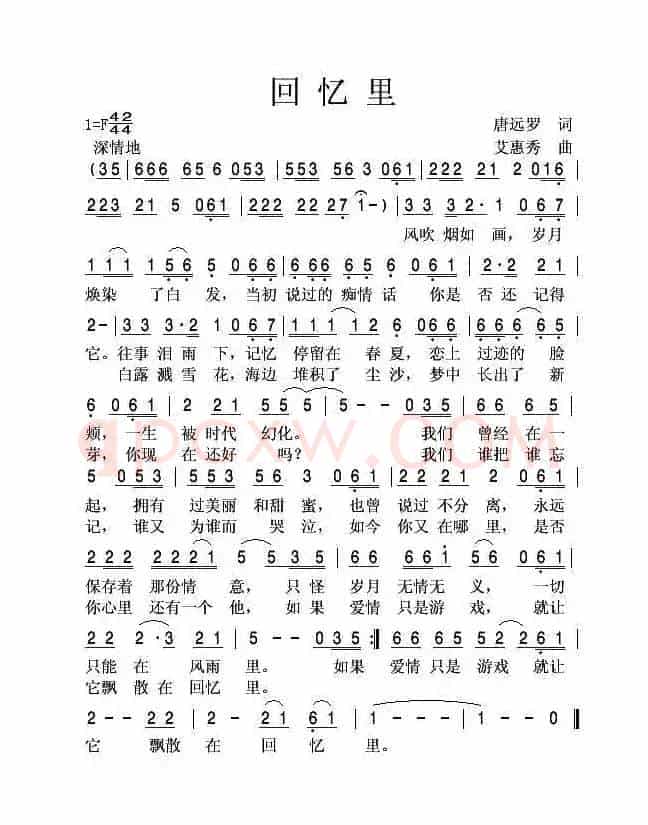 回忆里
1=F 42/44 唐远罗 词
深情地 艾惠秀 曲
(35 | 666 65 6 053 | 553 56 3 061 | 222 21 2 016 |
223 21 5 061 | 222 22 7 1-) | 33 32· 1 067 |
风吹 烟如 画， 岁月
111 156 5 066 | 666 65 6 061 | 2·2 2 21 |
焕染 了白 发， 当初 说过的 痴情 话 你是 否还 记得
2- | 33 3·2 1 067 | 111 12 6 066 | 666 6 65 |
它。往事 泪雨 下，记忆 停留在 春 夏，恋上 过迹的 脸
白露 溅雪 花，海边 堆积了 尘 沙，梦中 长出了 新
6 061 | 2 22 21 | 55 5 | 5 - - 035 | 66 65 55 3 |
颊，一生 被 时代 幻化。 我们 曾经 在一
芽，你现 在还好 吗？ 我们 谁把 谁忘
5 053 | 553 56 3 061 | 221 21 2 061 |
起，拥有 过美丽 和甜 蜜，也曾 说过 不分 离，永远
记，谁又 为谁而 哭 泣，如今 你又 在哪 里，是否
222 2221 5 035 | 66 661 5 56 061 |
保存着 那份情 意，只怪 岁月 无情无 义， 一切
你心里 还有一个 他，如果 爱情 只是游 戏， 就让
22 2·3 21 | 1 - - 035 :| 66 665 52 261 |
只能 在 风雨 里。 如果 爱情 只是 游戏 就让
它飘 散在 回忆 里。
2 - 22 | 2 - 21 61 | 1 - - - | 1 - - 0 ||
它 飘散 在 回 忆 里。